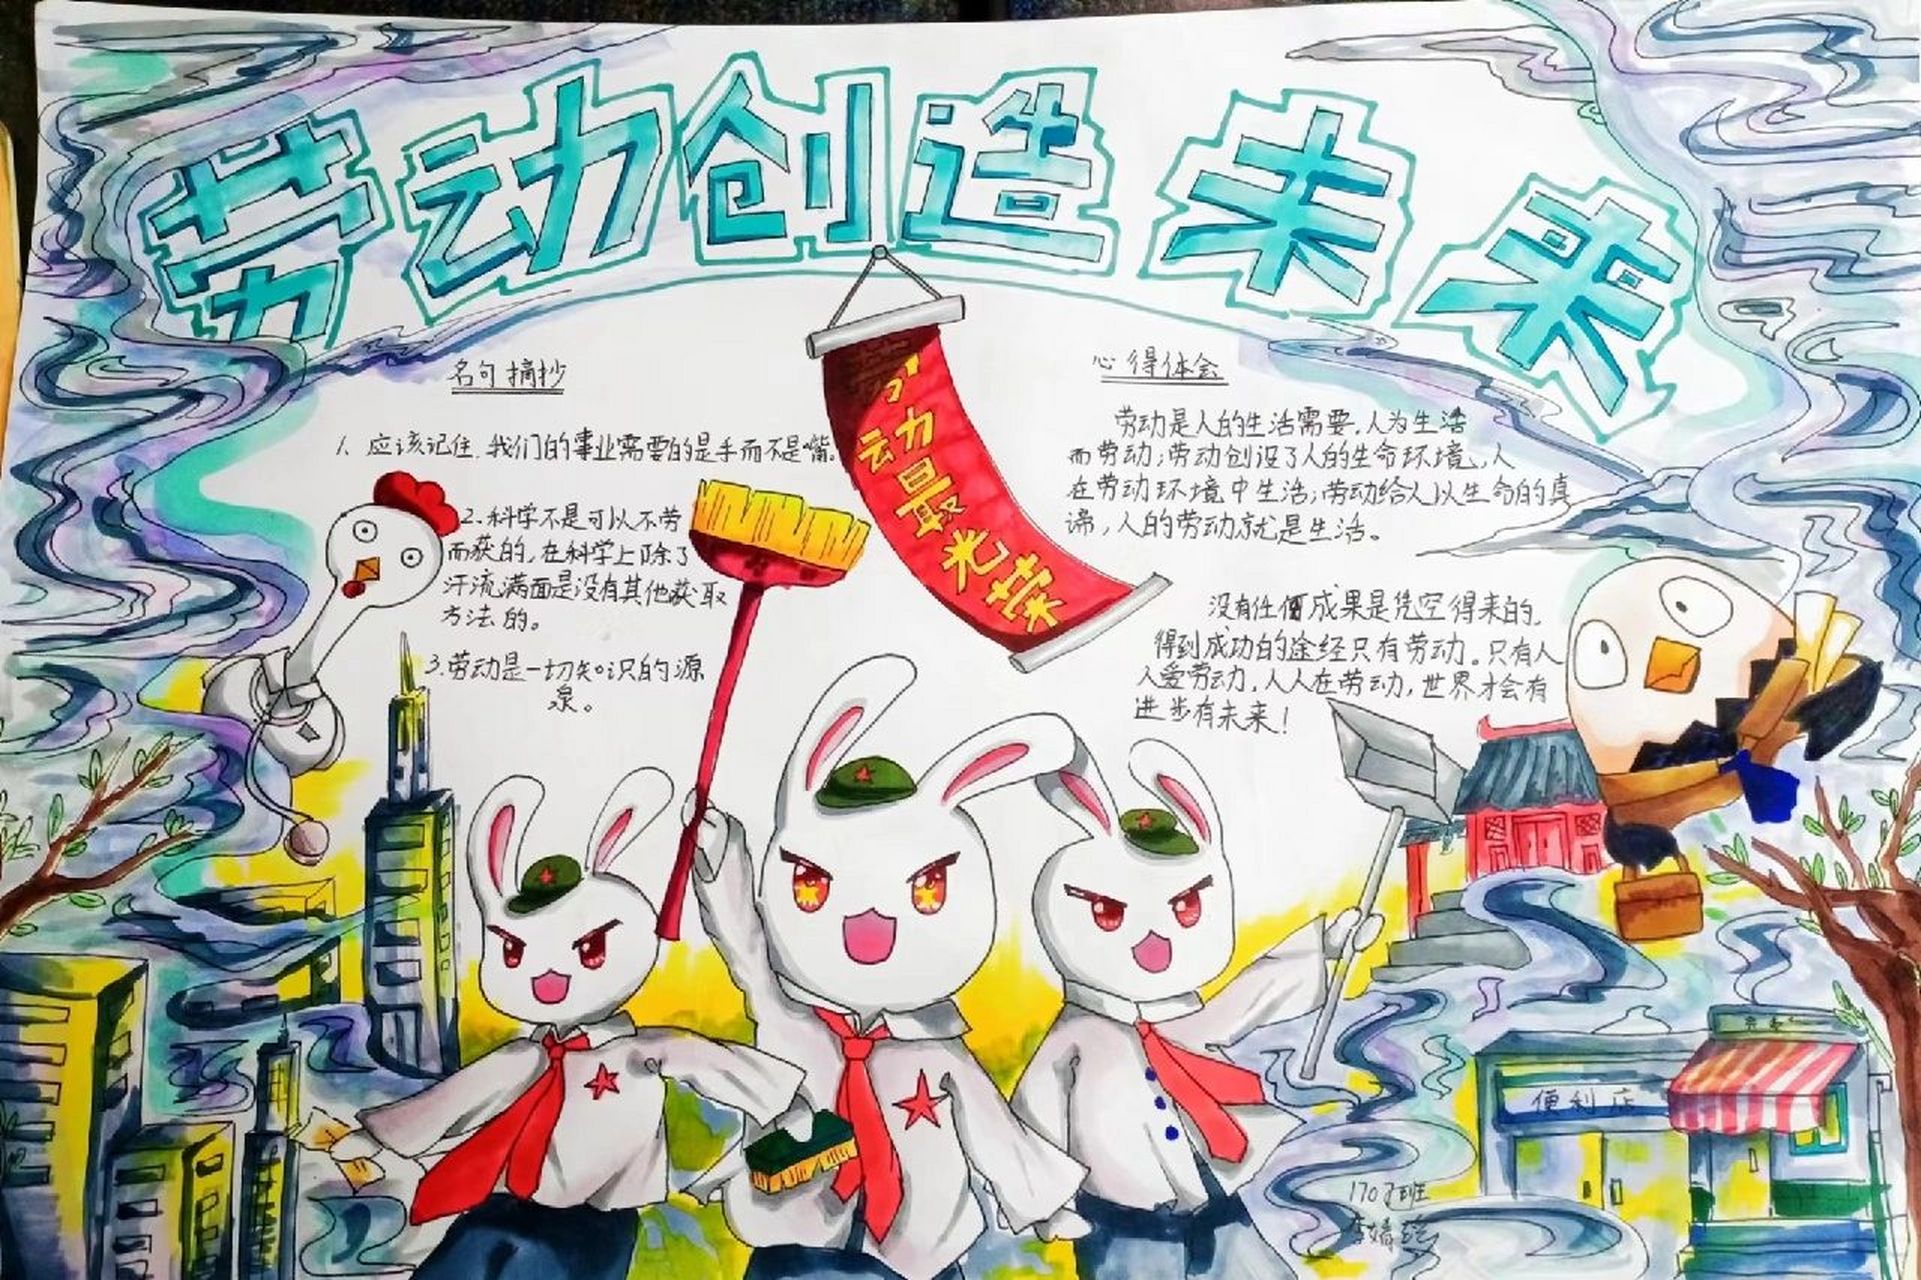 劳动创造未来
名句摘抄
1. 应该记住,我们的事业需要的是手而不是嘴。
2.科学不是可以不劳
而获的,在科学上除了
汗流满面是没有其他获取
方法的。
3.劳动是一切知识的源
泉。
劳动最光荣
心得体会
劳动是人的生活需要,人为生活
而劳动;劳动创设了人的生命环境,人
在劳动环境中生活;劳动给人以生命的真
谛,人的劳动就是生活。
没有任何成果是凭空得来的,
得到成功的途经只有劳动。只有人
人爱劳动,人人在劳动,世界才会有
进步有未来!
便利店
1707班